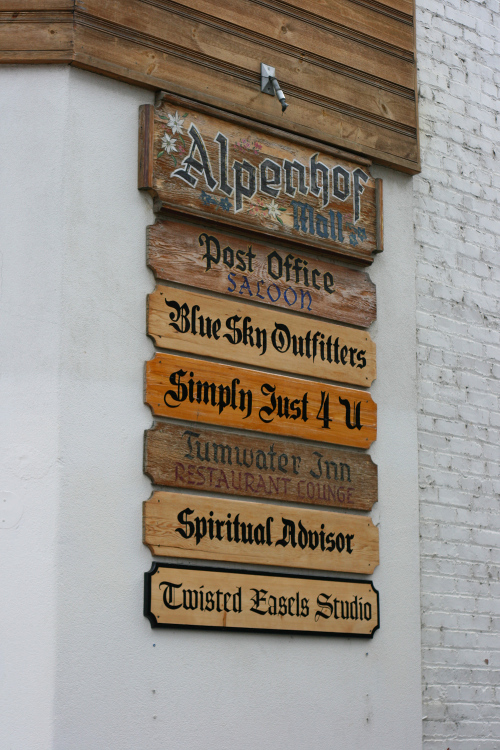 Alpenhof
Mall
Post Office
SALOON
Blue Sky Outfitters
Simply Just 4 U
Tumwater Inn
RESTAURANT LOUNGE
Spiritual Advisor
Twisted Easels Studio